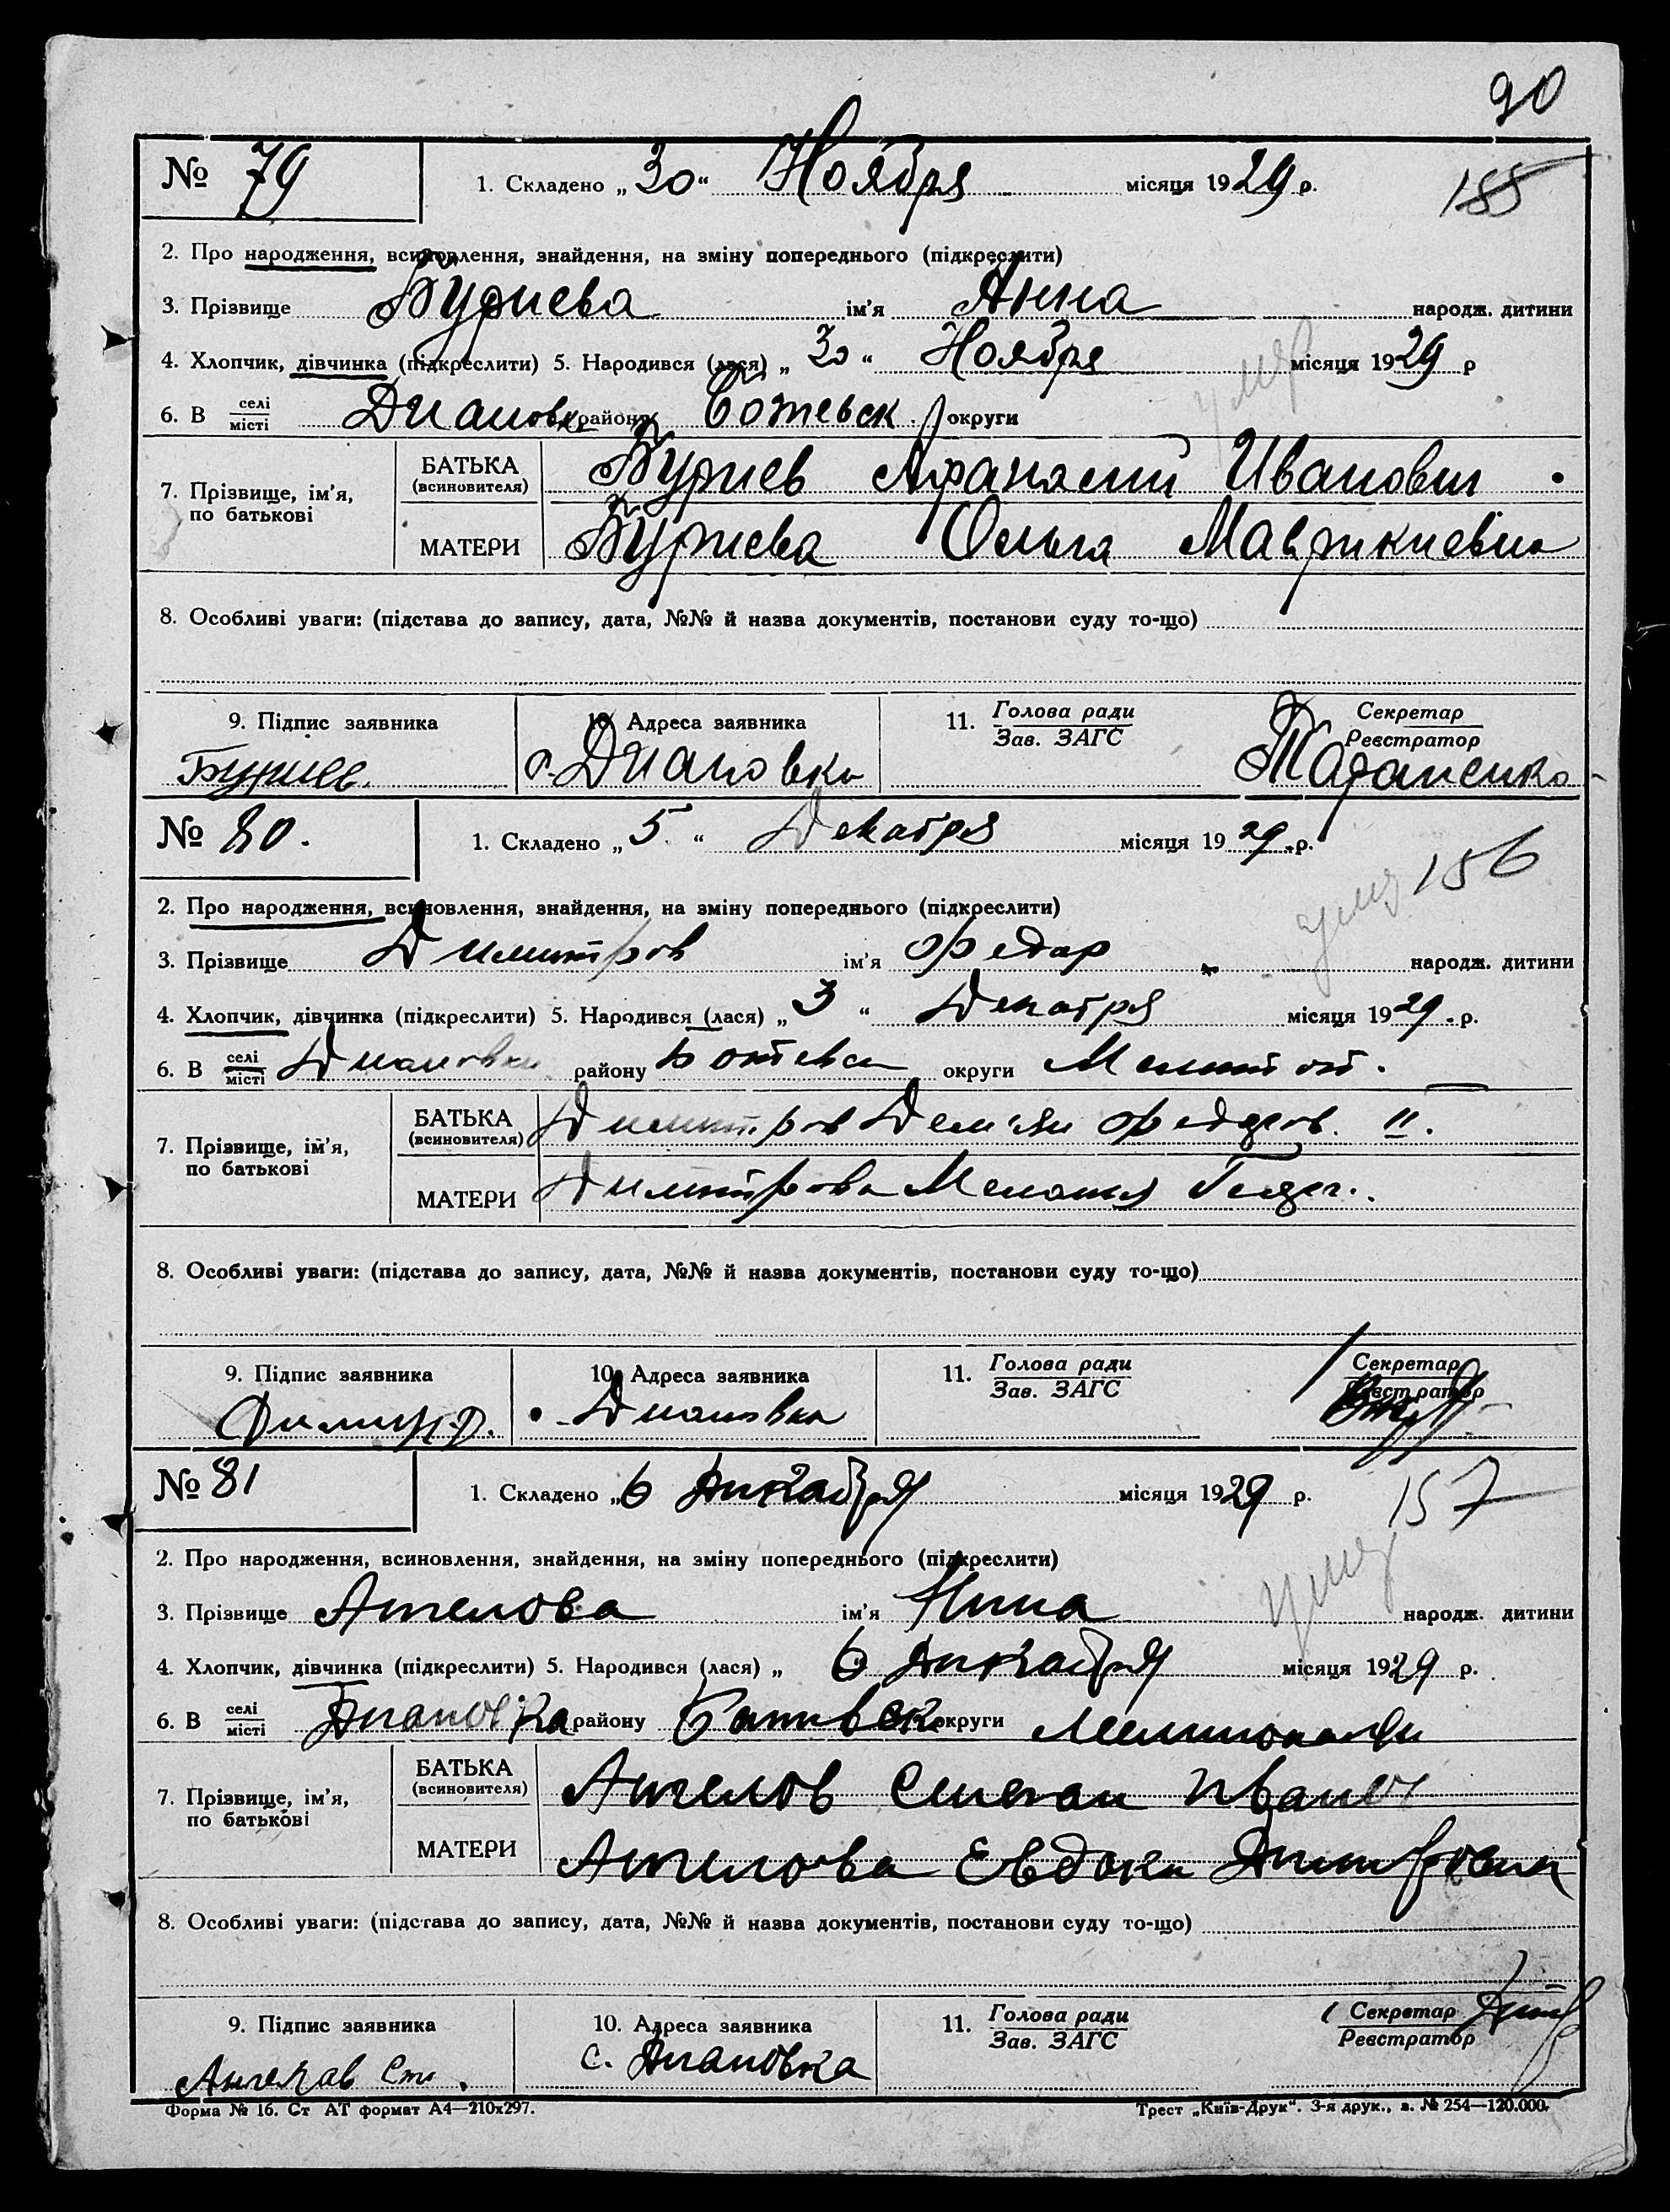 90
№ 79 1. Складено „30“ Ноября місяця 1929 р. 155
2. Про народження, всиновлення, знайдення, на зміну попереднього (підкреслити)
3. Прізвище Буриева ім'я Анна народж. дитини
4. Хлопчик, дівчинка (підкреслити) 5. Народився (лася) „30“ Ноября місяця 1929 р
6. В селі/місті Диановка району Ботевск. округи
7. Прізвище, ім'я, по батькові
БАТЬКА (всиновителя) Буриев Афанасий Иванович
МАТЕРИ Буриева Ольга Маврикиевна
8. Особливі уваги: (підстава до запису, дата, №№ й назва документів, постанови суду то-що)
9. Підпис заявника 10. Адреса заявника 11. Голова ради Зав. ЗАГС Секретар Реєстратор
Буриев. с. Диановка
№ 80. 1. Складено „5“ Декабря місяця 1929 р. 156
2. Про народження, всиновлення, знайдення, на зміну попереднього (підкреслити)
3. Прізвище Димитров ім'я Федор народж. дитини
4. Хлопчик, дівчинка (підкреслити) 5. Народився (лася) „3“ Декабря місяця 1929 р.
6. В селі/місті Диановка району Ботевск округи Мелитоп.
7. Прізвище, ім'я, по батькові
БАТЬКА (всиновителя) Димитров Демьян Федоров. II.
МАТЕРИ Димитрова Мелания
8. Особливі уваги: (підстава до запису, дата, №№ й назва документів, постанови суду то-що)
9. Підпис заявника 10. Адреса заявника 11. Голова ради Зав. ЗАГС Секретар Реєстратор
с. Диановка
№ 81 1. Складено „6 Дикабря місяця 1929 р. 157
2. Про народження, всиновлення, знайдення, на зміну попереднього (підкреслити)
3. Прізвище Ангелова ім'я Нина народж. дитини
4. Хлопчик, дівчинка (підкреслити) 5. Народився (лася) „ 6 Дикабря місяця 1929 р.
6. В селі/місті Диановка району Ботивск округи
7. Прізвище, ім'я, по батькові
БАТЬКА (всиновителя) Ангелов Степан Иванов
МАТЕРИ Ангелова Евдоки
8. Особливі уваги: (підстава до запису, дата, №№ й назва документів, постанови суду то-що)
9. Підпис заявника 10. Адреса заявника 11. Голова ради Зав. ЗАГС Секретар Реєстратор
Ангелав Сте. с. Диановка
Форма № 16. Ст АТ формат А4—210х297. Трест „Київ-Друк“. 3-я друк., з. № 254—120.000.